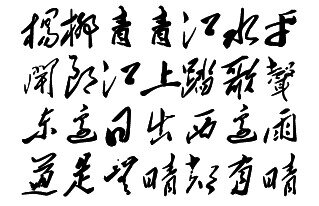 楊柳青青江水平
聞郎江上踏歌聲
东边日出西边雨
道是無晴却有晴